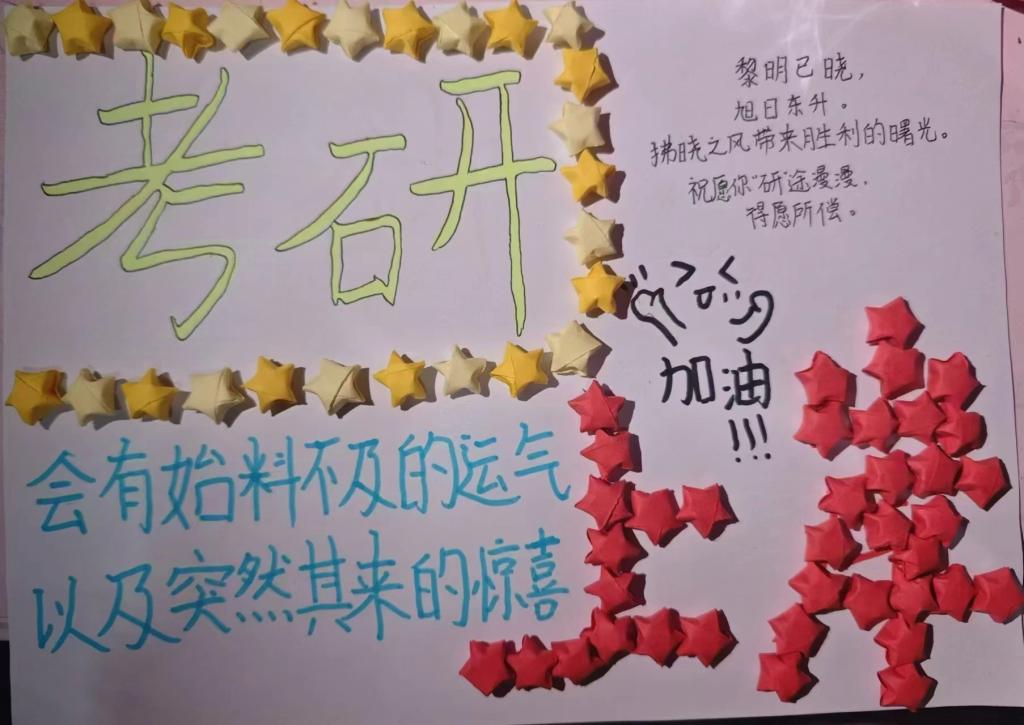 考研
黎明已晓，
旭日东升。
拂晓之风带来胜利的曙光。
祝愿你“研”途漫漫，
得愿所偿。
加油
!!!
会有始料不及的运气
以及突然其来的惊喜
上岸